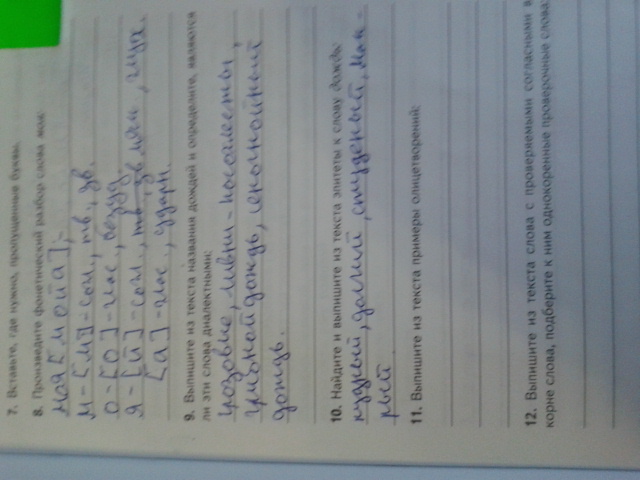 7. Вставьте, где нужно, пропущенные буквы.
8. Произведите фонетический разбор слова моя:
моя [мойа];-
м-[м]-согл., тв., зв.
о-[о]-глас., безуд
я-[й]-согл., мягк., глух.
[а]-глас., ударн.
9. Выпишите из текста названия дождей и определите, являются
ли эти слова диалектными:
грозовые, ливни-косохлёсты,
грибной дождь, окладной
дождь.
10. Найдите и выпишите из текста эпитеты к слову дождь:
нудный, долгий, студёный, мок-
рый.
11. Выпишите из текста примеры олицетворений:
12. Выпишите из текста слова с проверяемыми согласными в
корне слова, подберите к ним однокоренные проверочные слова: